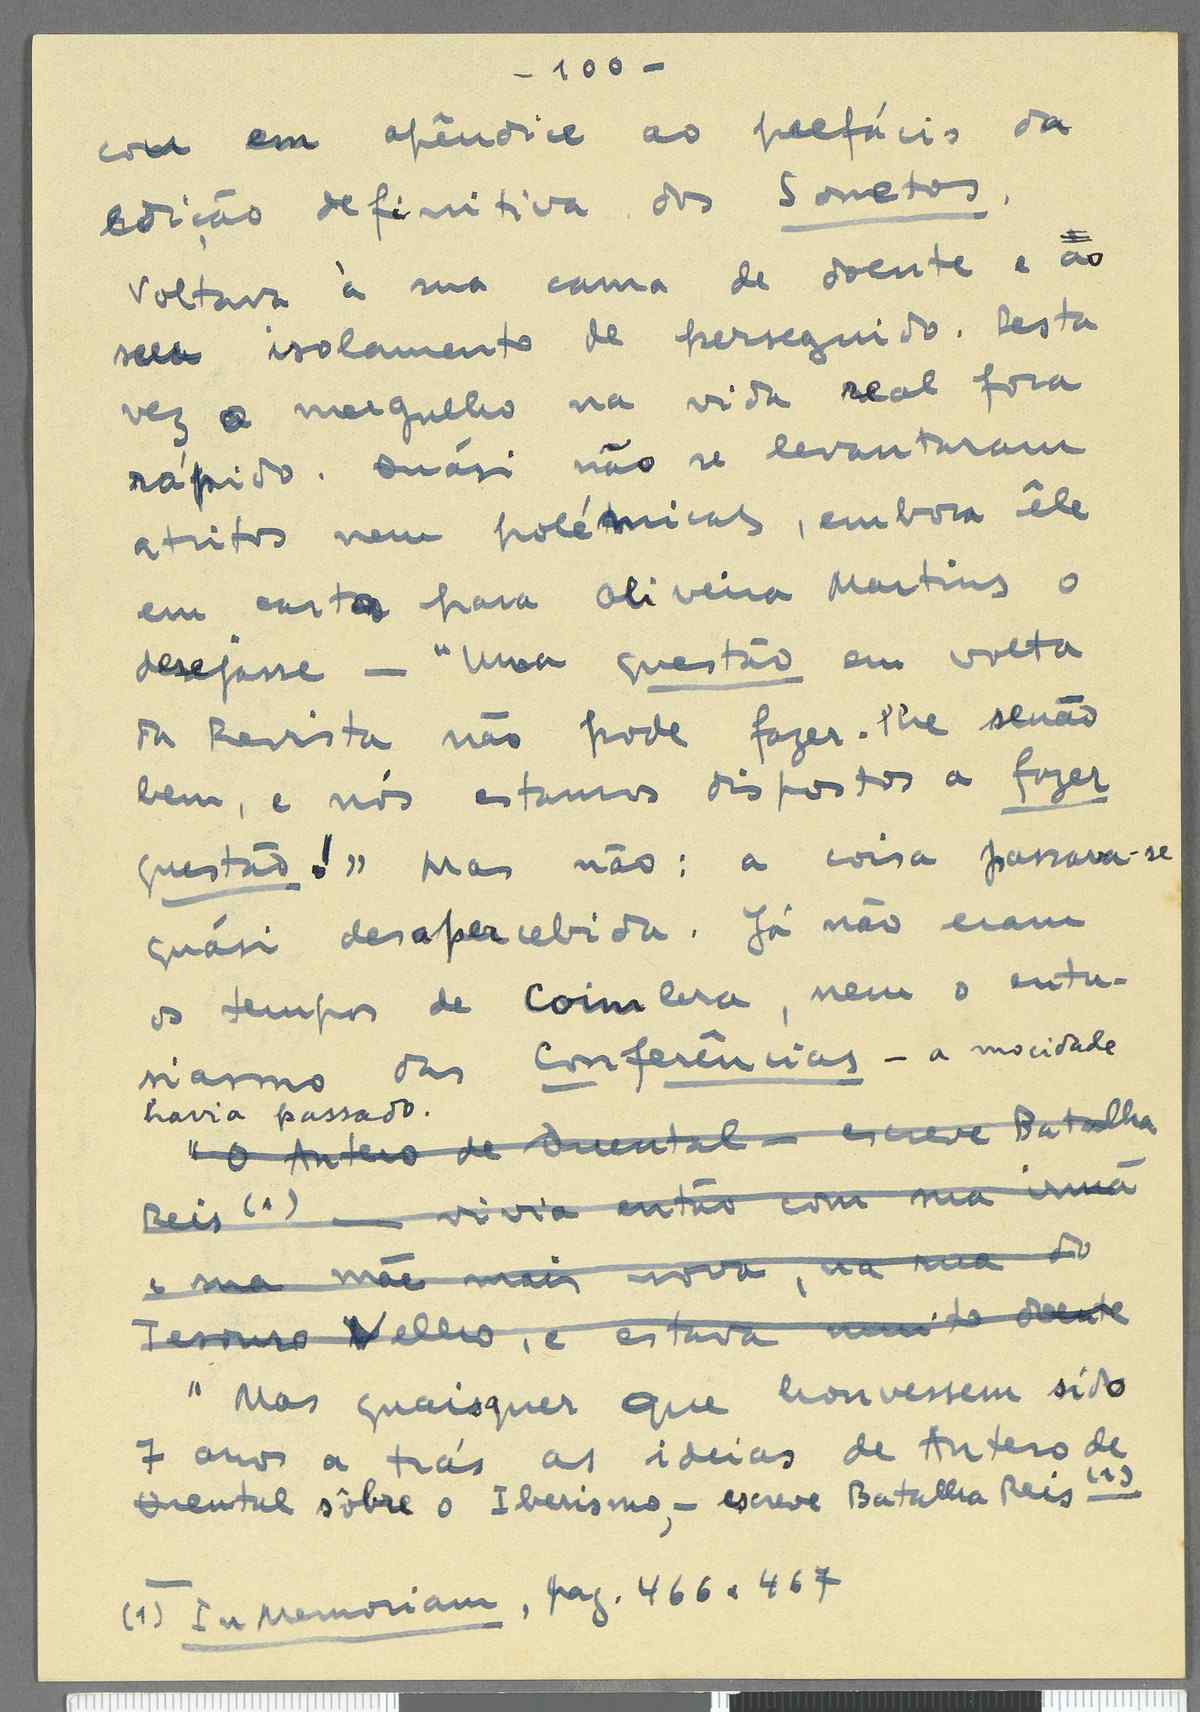 - 100 -
cou em apêndice ao prefácio da
edição definitiva dos Sonetos.
Voltava à sua cama de doente e ao
seu isolamento de perseguido. Desta
vez o mergulho na vida real fora
rápido. Quási não se levantaram
atritos nem polémicas, embora êle
em cartas para Oliveira Martins o
desejasse — "Uma questão em volta
da Revista não pode fazer-lhe senão
bem, e nós estamos dispostos a fazer
questão!" Mas não: a coisa passava-se
quási desapercebida. Já não eram
os tempos de Coimbra, nem o entu-
siasmo das Conferências - a mocidade
havia passado.
"O Antero de Quental — escreve Batalha
Reis (1) — vivia então com sua irmã
e sua mãe mais nova, na rua do
Tesouro Velho, e estava muito doente
"Mas quaisquer que houvessem sido
7 anos a trás as ideias de Antero de
Quental sôbre o Iberismo, - escreve Batalha Reis (1)
(1) In Memoriam, pag. 466 e 467